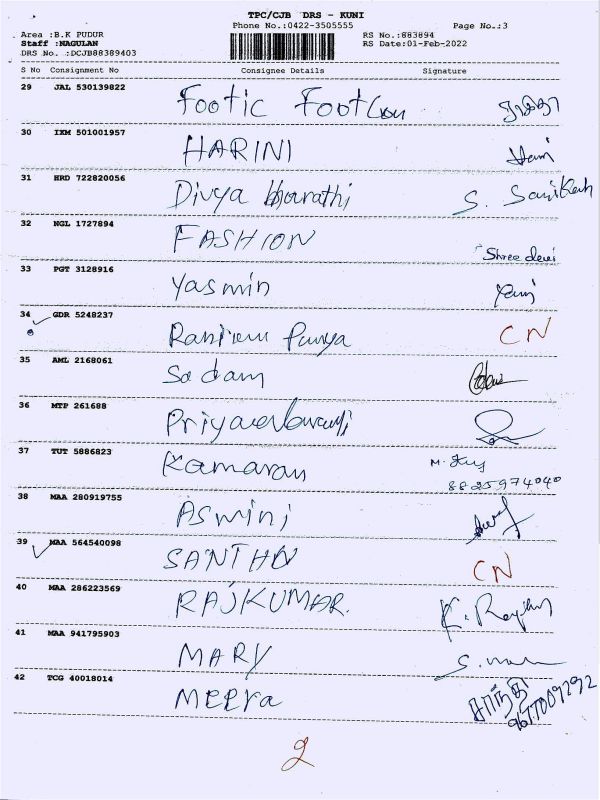 TPC/CJB DRS - KUNI
Phone No.:0422-3505555 Page No.:3
Area :B.K PUDUR RS No.:883894
Staff :NAGULAN RS Date:01-Feb-2022
DRS No. :DCJB88389403
S No Consignment No Consignee Details Signature
29 JAL 530139822 Footic
30 IXM 501001957 HARINI Hari
31 HRD 722820056 Divya bharathi S.
32 NGL 1727894 FASHION Shree devi
33 PGT 3128916 Yasmin
34 GDR 5248237 CN
35 AML 2168061 Sadam
36 MTP 261688
37 TUT 5886823 Kamaran M. 8825974040
38 MAA 280919755 Asmini
39 MAA 564540098 SANTHO CN
40 MAA 286223569 RAJKUMAR. K.
41 MAA 941795903 MARY S.
42 TCG 40018014 Meera சாந்தி
2